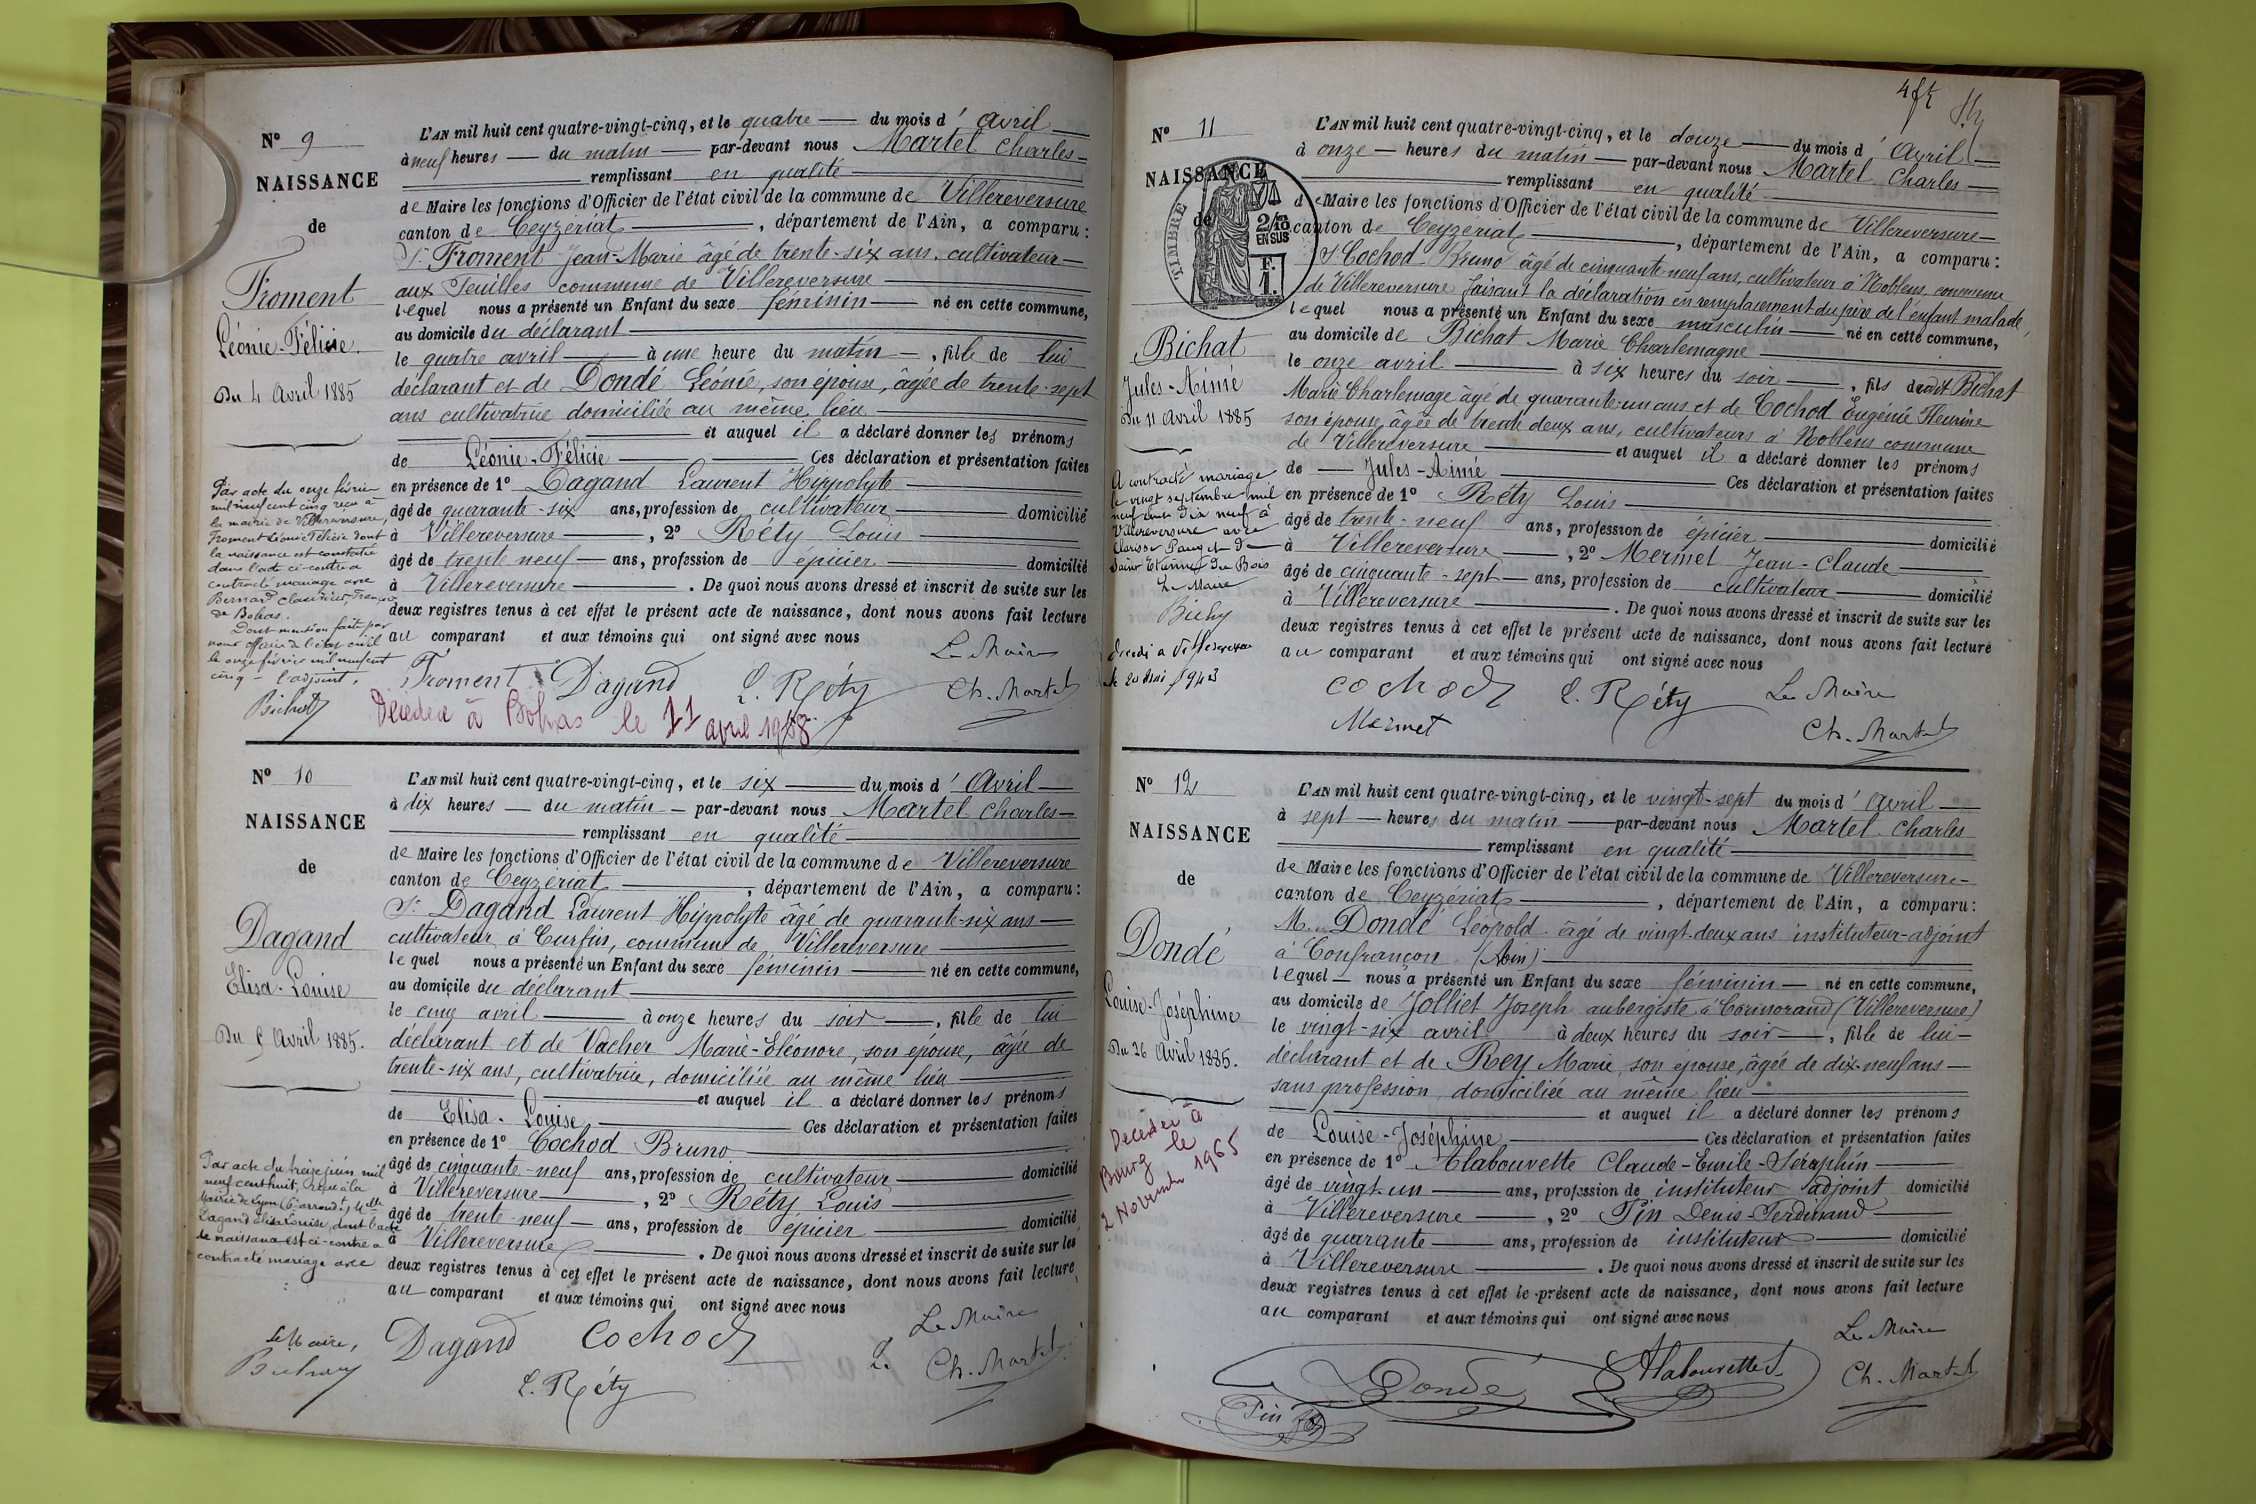 Nº 9
NAISSANCE
de
Froment
Léonie-Félicie.
Du 4 Avril 1885
L'AN mil huit cent quatre-vingt-cinq, et le quatre du mois d'Avril
à neuf heures du matin par-devant nous Martel Charles
remplissant en qualité
de Maire les fonctions d'Officier de l'état civil de la commune de Villereversure
canton de Ceyzériat, département de l'Ain, a comparu :
Sr Froment Jean-Marie âgé de trente-six ans, cultivateur
aux Feuilles commune de Villereversure
lequel nous a présenté un Enfant du sexe féminin né en cette commune,
au domicile du déclarant
le quatre avril à une heure du matin, fille de lui
déclarant et de Dondé Léonie, son épouse, âgée de trente-sept
ans cultivatrice domiciliée au même lieu
et auquel il a déclaré donner les prénoms
de Léonie-Félicie Ces déclaration et présentation faites
en présence de 1º Dagand Laurent Hippolyte
âgé de quarante-six ans, profession de cultivateur domicilié
à Villereversure, 2º Réty Louis
âgé de trente neuf ans, profession de épicier domicilié
à Villereversure. De quoi nous avons dressé et inscrit de suite sur les
deux registres tenus à cet effet le présent acte de naissance, dont nous avons fait lecture
au comparant et aux témoins qui ont signé avec nous
Le Maire
Froment Dagand L. Réty Ch. Martel
Décédée à Bohas le 11 avril 1968
Par acte du onze février
mil neuf cent cinq reçu à
la mairie de Villereversure,
Froment Léonie Félicie dont
la naissance est constatée
dans l'acte ci-contre a
contracté mariage avec
Bernard Claudius, François
de Bohas.
Dont mention faite par
nous officier de l'état civil
le onze février mil neuf cent
cinq - l'adjoint,
Nº 10
NAISSANCE
de
Dagand
Elisa-Louise
Du 5 Avril 1885.
L'AN mil huit cent quatre-vingt-cinq, et le six du mois d'Avril
à dix heures du matin par-devant nous Martel Charles
remplissant en qualité
de Maire les fonctions d'Officier de l'état civil de la commune de Villereversure
canton de Ceyzériat, département de l'Ain, a comparu :
Sr Dagand Laurent Hippolyte âgé de quarante-six ans
cultivateur à Curfin, commune de Villereversure
lequel nous a présenté un Enfant du sexe féminin né en cette commune,
au domicile du déclarant
le cinq avril à onze heures du soir, fille de lui
déclarant et de Vacher Marie-Eléonore, son épouse, âgée de
trente-six ans, cultivatrice, domiciliée au même lieu
et auquel il a déclaré donner les prénoms
de Elisa-Louise Ces déclaration et présentation faites
en présence de 1º Cochod Bruno
âgé de cinquante-neuf ans, profession de cultivateur domicilié
à Villereversure, 2º Réty Louis
âgé de trente-neuf ans, profession de épicier domicilié
à Villereversure. De quoi nous avons dressé et inscrit de suite sur les
deux registres tenus à cet effet le présent acte de naissance, dont nous avons fait lecture
au comparant et aux témoins qui ont signé avec nous
Le Maire
Dagand Cochod
L. Réty Ch. Martel
Par acte du treize juin mil
neuf cent huit, reçu à la
Mairie de Lyon (6e arrondt), Melle
Dagand Elisa Louise, dont l'acte
de naissance est ci-contre a
contracté mariage avec
le Maire,
4 ft
Nº 11
NAISSANCE
de
TIMBRE
2/10 EN SUS
F. 1.
Bichat
Jules-Aimé
Du 11 Avril 1885
L'AN mil huit cent quatre-vingt-cinq, et le douze du mois d'Avril
à onze heures du matin par-devant nous Martel Charles
remplissant en qualité
de Maire les fonctions d'Officier de l'état civil de la commune de Villereversure
canton de Ceyzériat, département de l'Ain, a comparu :
Sr Cochod Bruno âgé de cinquante-neuf ans, cultivateur à Noblens, commune
de Villereversure faisant la déclaration en remplacement du père de l'enfant malade,
lequel nous a présenté un Enfant du sexe masculin né en cette commune,
au domicile de Bichat Marie Charlemagne
le onze avril à six heures du soir, fils dudit Bichat
Marie Charlemage âgé de quarante-un ans et de Cochod Eugénie Fleurine
son épouse, âgée de trente deux ans, cultivateurs à Noblens commune
de Villereversure et auquel il a déclaré donner les prénoms
de Jules-Aimé Ces déclaration et présentation faites
en présence de 1º Réty Louis
âgé de trente-neuf ans, profession de épicier domicilié
à Villereversure, 2º Mermet Jean-Claude
âgé de cinquante-sept ans, profession de cultivateur domicilié
à Villereversure. De quoi nous avons dressé et inscrit de suite sur les
deux registres tenus à cet effet le présent acte de naissance, dont nous avons fait lecture
au comparant et aux témoins qui ont signé avec nous
Cochod L. Réty Le Maire
Mermet Ch. Martel
A contracté mariage
le vingt septembre mil
neuf cent dix neuf à
Villereversure avec
Clarisse Pauget de
Saint Etienne du Bois
Le Maire
Décédé à Villereversure
le 20 Mai 1943
Nº 12
NAISSANCE
de
Dondé
Louise-Joséphine
Du 26 Avril 1885.
L'AN mil huit cent quatre-vingt-cinq, et le vingt-sept du mois d'avril
à sept heures du matin par-devant nous Martel Charles
remplissant en qualité
de Maire les fonctions d'Officier de l'état civil de la commune de Villereversure
canton de Ceyzériat, département de l'Ain, a comparu :
M. Dondé Léopold âgé de vingt-deux ans instituteur-adjoint
à Confrançon (Ain)
lequel nous a présenté un Enfant du sexe féminin né en cette commune,
au domicile de Jolliet Joseph aubergiste à Cormorand (Villereversure)
le vingt-six avril à deux heures du soir, fille de lui
déclarant et de Rey Marie, son épouse, âgée de dix-neuf ans
sans profession, domiciliée au même lieu
et auquel il a déclaré donner les prénoms
de Louise-Joséphine Ces déclaration et présentation faites
en présence de 1º Alabouvette Claude-Emile-Séraphin
âgé de vingt-un ans, profession de instituteur adjoint domicilié
à Villereversure, 2º Pin Denis-Ferdinand
âgé de quarante ans, profession de instituteur domicilié
à Villereversure. De quoi nous avons dressé et inscrit de suite sur les
deux registres tenus à cet effet le présent acte de naissance, dont nous avons fait lecture
au comparant et aux témoins qui ont signé avec nous
Le Maire
Dondé Alabouvette S. Ch. Martel
Pin
Décédée à
Bourg le
2 Novembre 1965